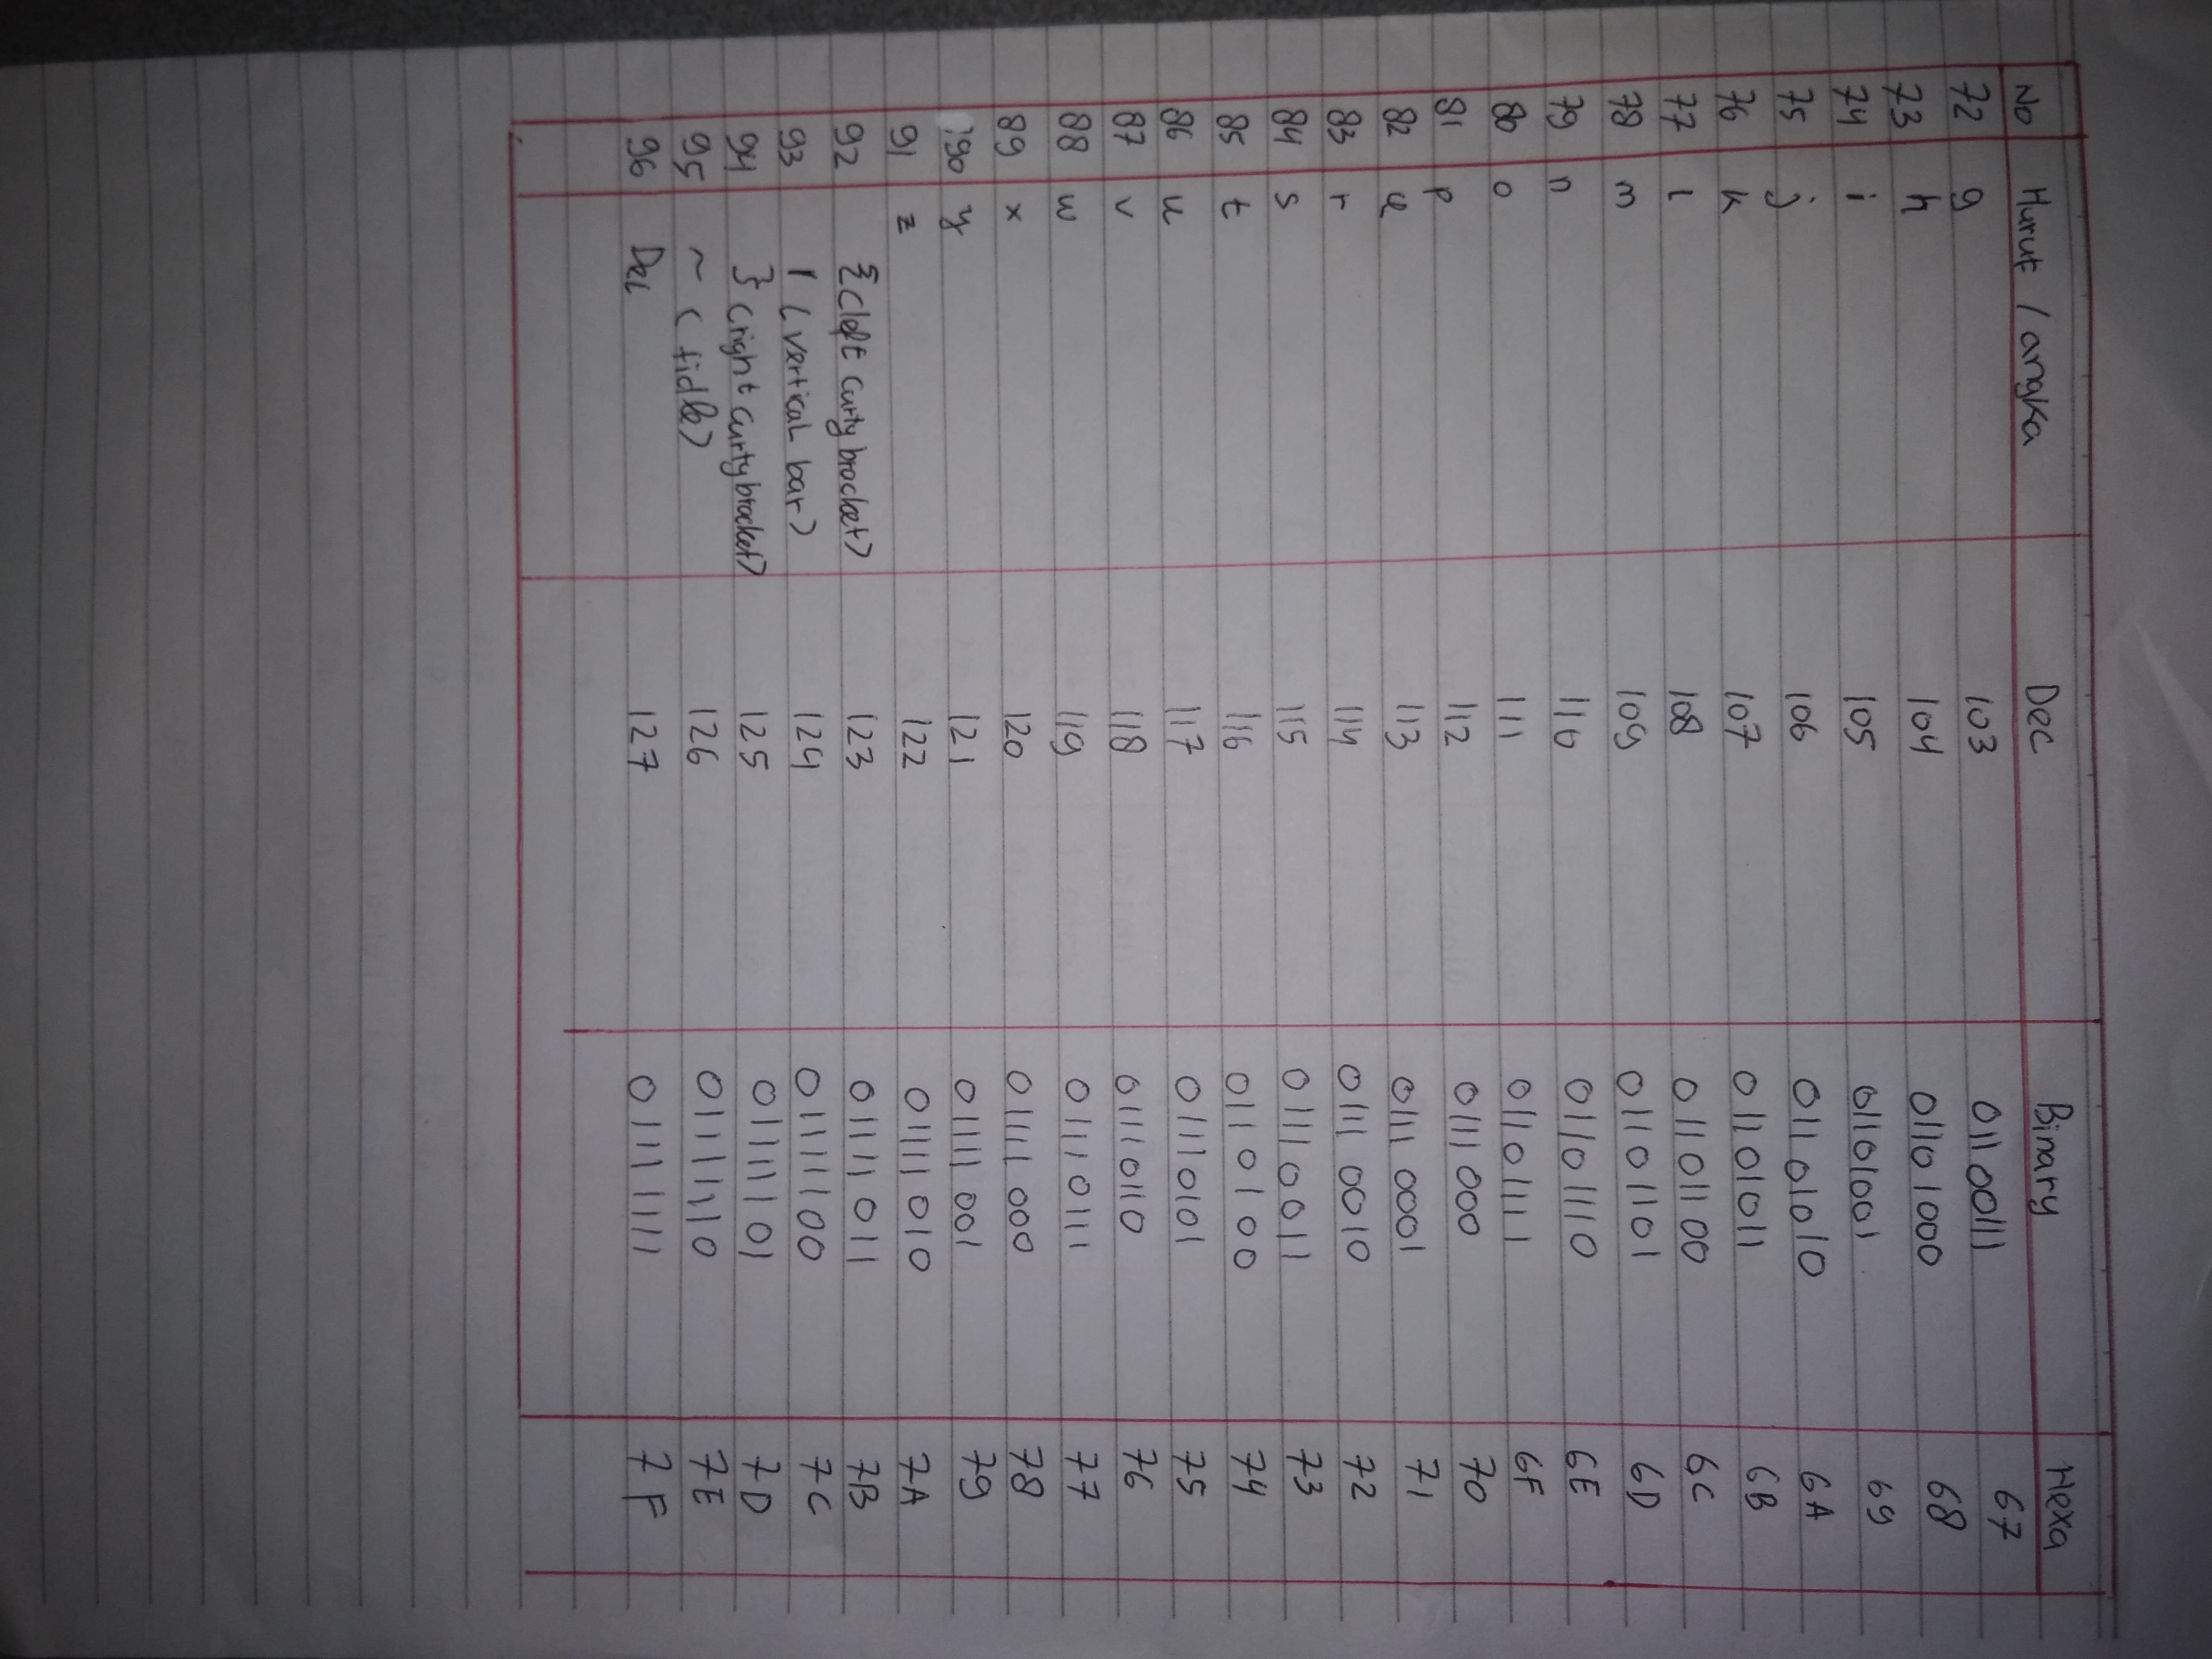 No Huruf / angka Dec Binary Hexa
72 g 103 01100111 67
73 h 104 01101000 68
74 i 105 01101001 69
75 j 106 01101010 6A
76 k 107 01101011 6B
77 l 108 01101100 6C
78 m 109 01101101 6D
79 n 110 01101110 6E
80 o 111 01101111 6F
81 p 112 0111 000 70
82 q 113 0111 0001 71
83 r 114 0111 0010 72
84 s 115 01110011 73
85 t 116 0110100 74
86 u 117 01110101 75
87 v 118 01110110 76
88 w 119 01110111 77
89 x 120 01111 000 78
90 y 121 01111 001 79
91 z 122 01111 010 7A
92 { (left curty bracket) 123 01111 011 7B
93 | (vertical bar) 124 01111100 7C
94 } (right curty bracket) 125 01111101 7D
95 ~ (tidle) 126 01111110 7E
96 Del 127 01111111 7F